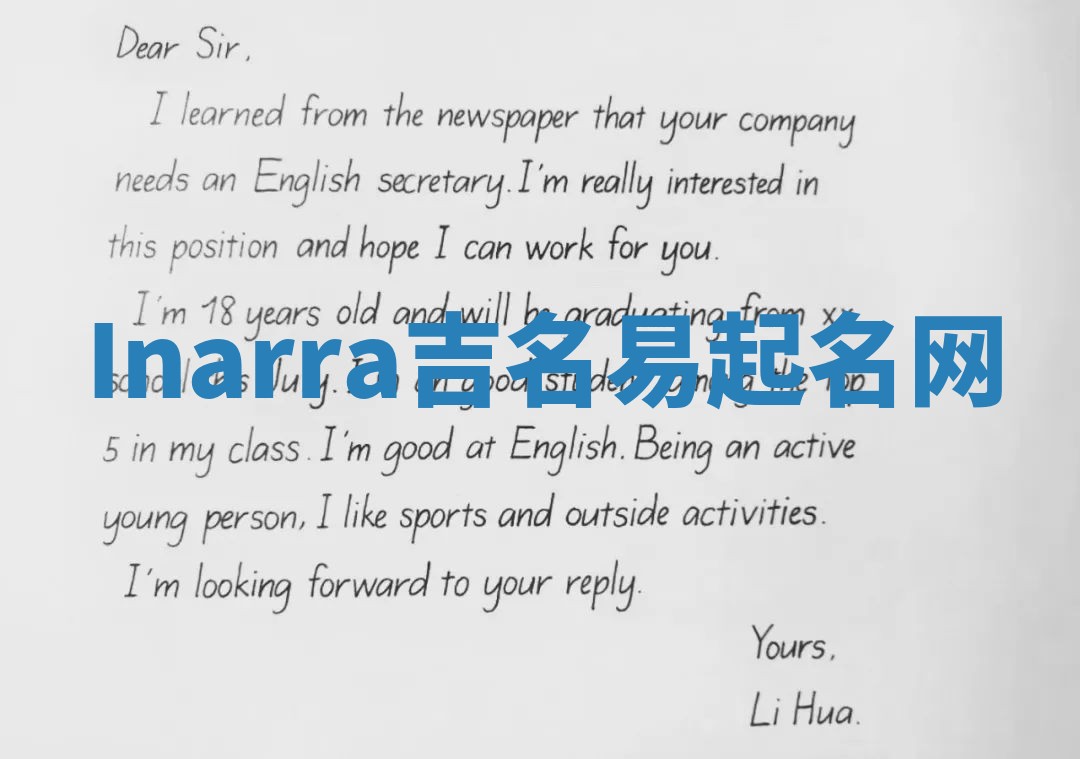 Dear Sir,
I learned from the newspaper that your company
needs an English secretary. I'm really interested in
this position and hope I can work for you.
I'm 18 years old and will be graduating from xx
Inarra吉名易起名网
school this July. I'm an good student among the top
5 in my class. I'm good at English. Being an active
young person, I like sports and outside activities.
I'm looking forward to your reply.
Yours,
Li Hua.